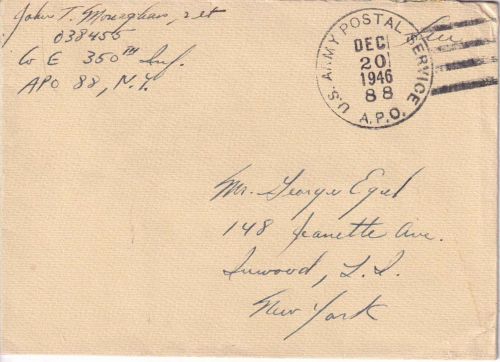 John T. Monaghan, 2 Lt
038455
Co E 350TH Inf.
APO 88, N.Y.
Free
U.S. ARMY POSTAL SERVICE
DEC
20
1946
88
A.P.O.
Mr. George Egel
148 Jeanette Ave.
Inwood, L. I.
New York